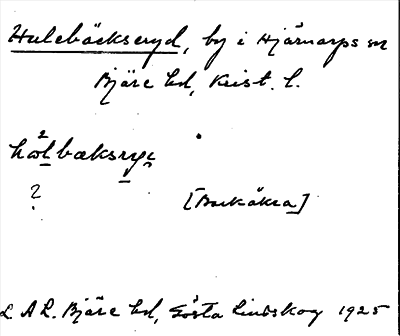 Hulebäckseryd, by i Hjärnarps sn
Bjäre hd, Krist. l.
hωl²bæksryi
?
[Barkåkra]
L. A L. Bjäre hd, Gösta Lindskog 1925